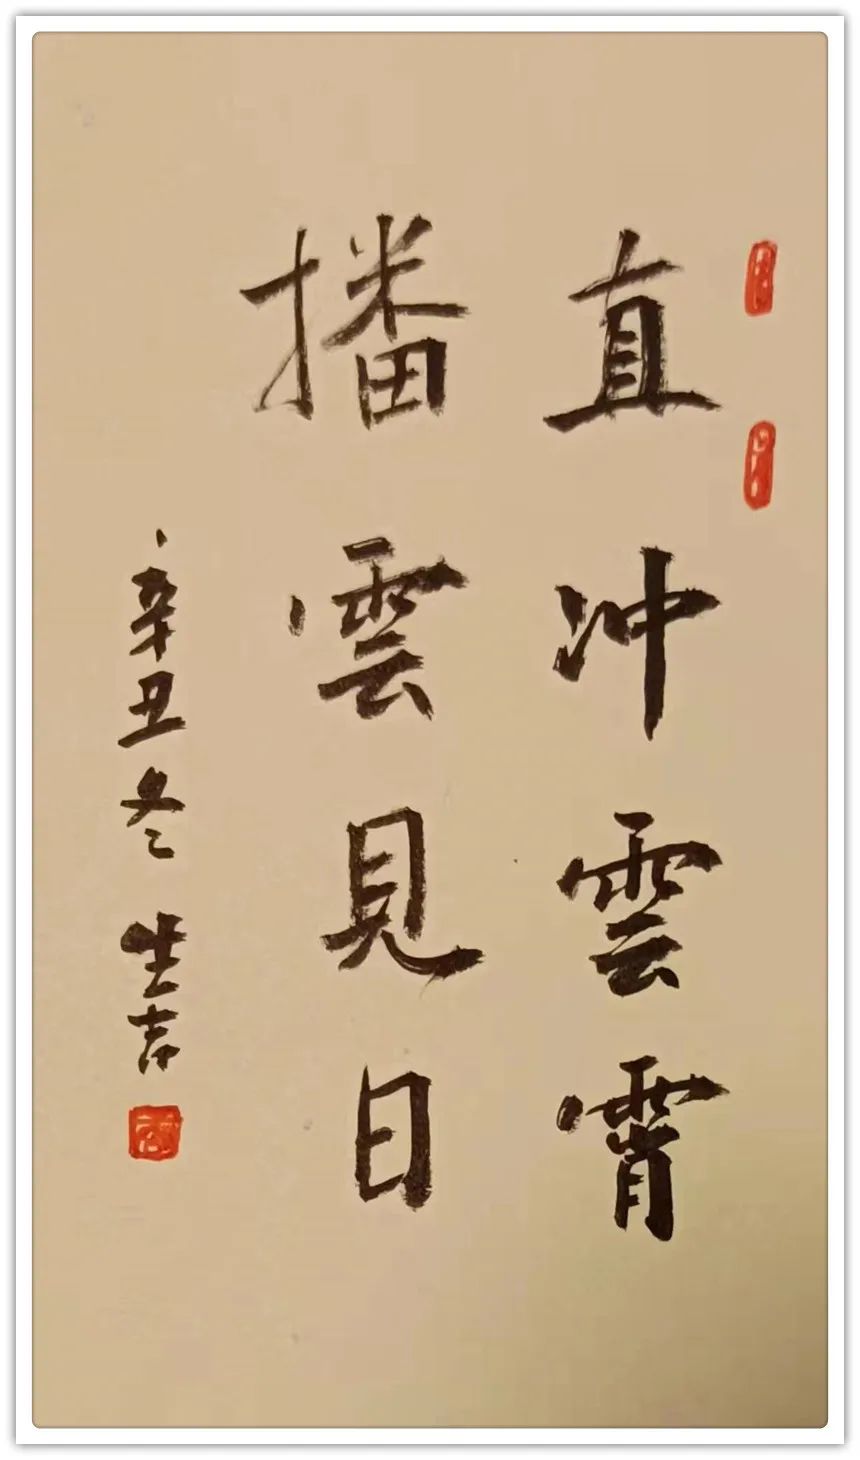 直冲雲霄
播雲見日
辛丑冬 生吉